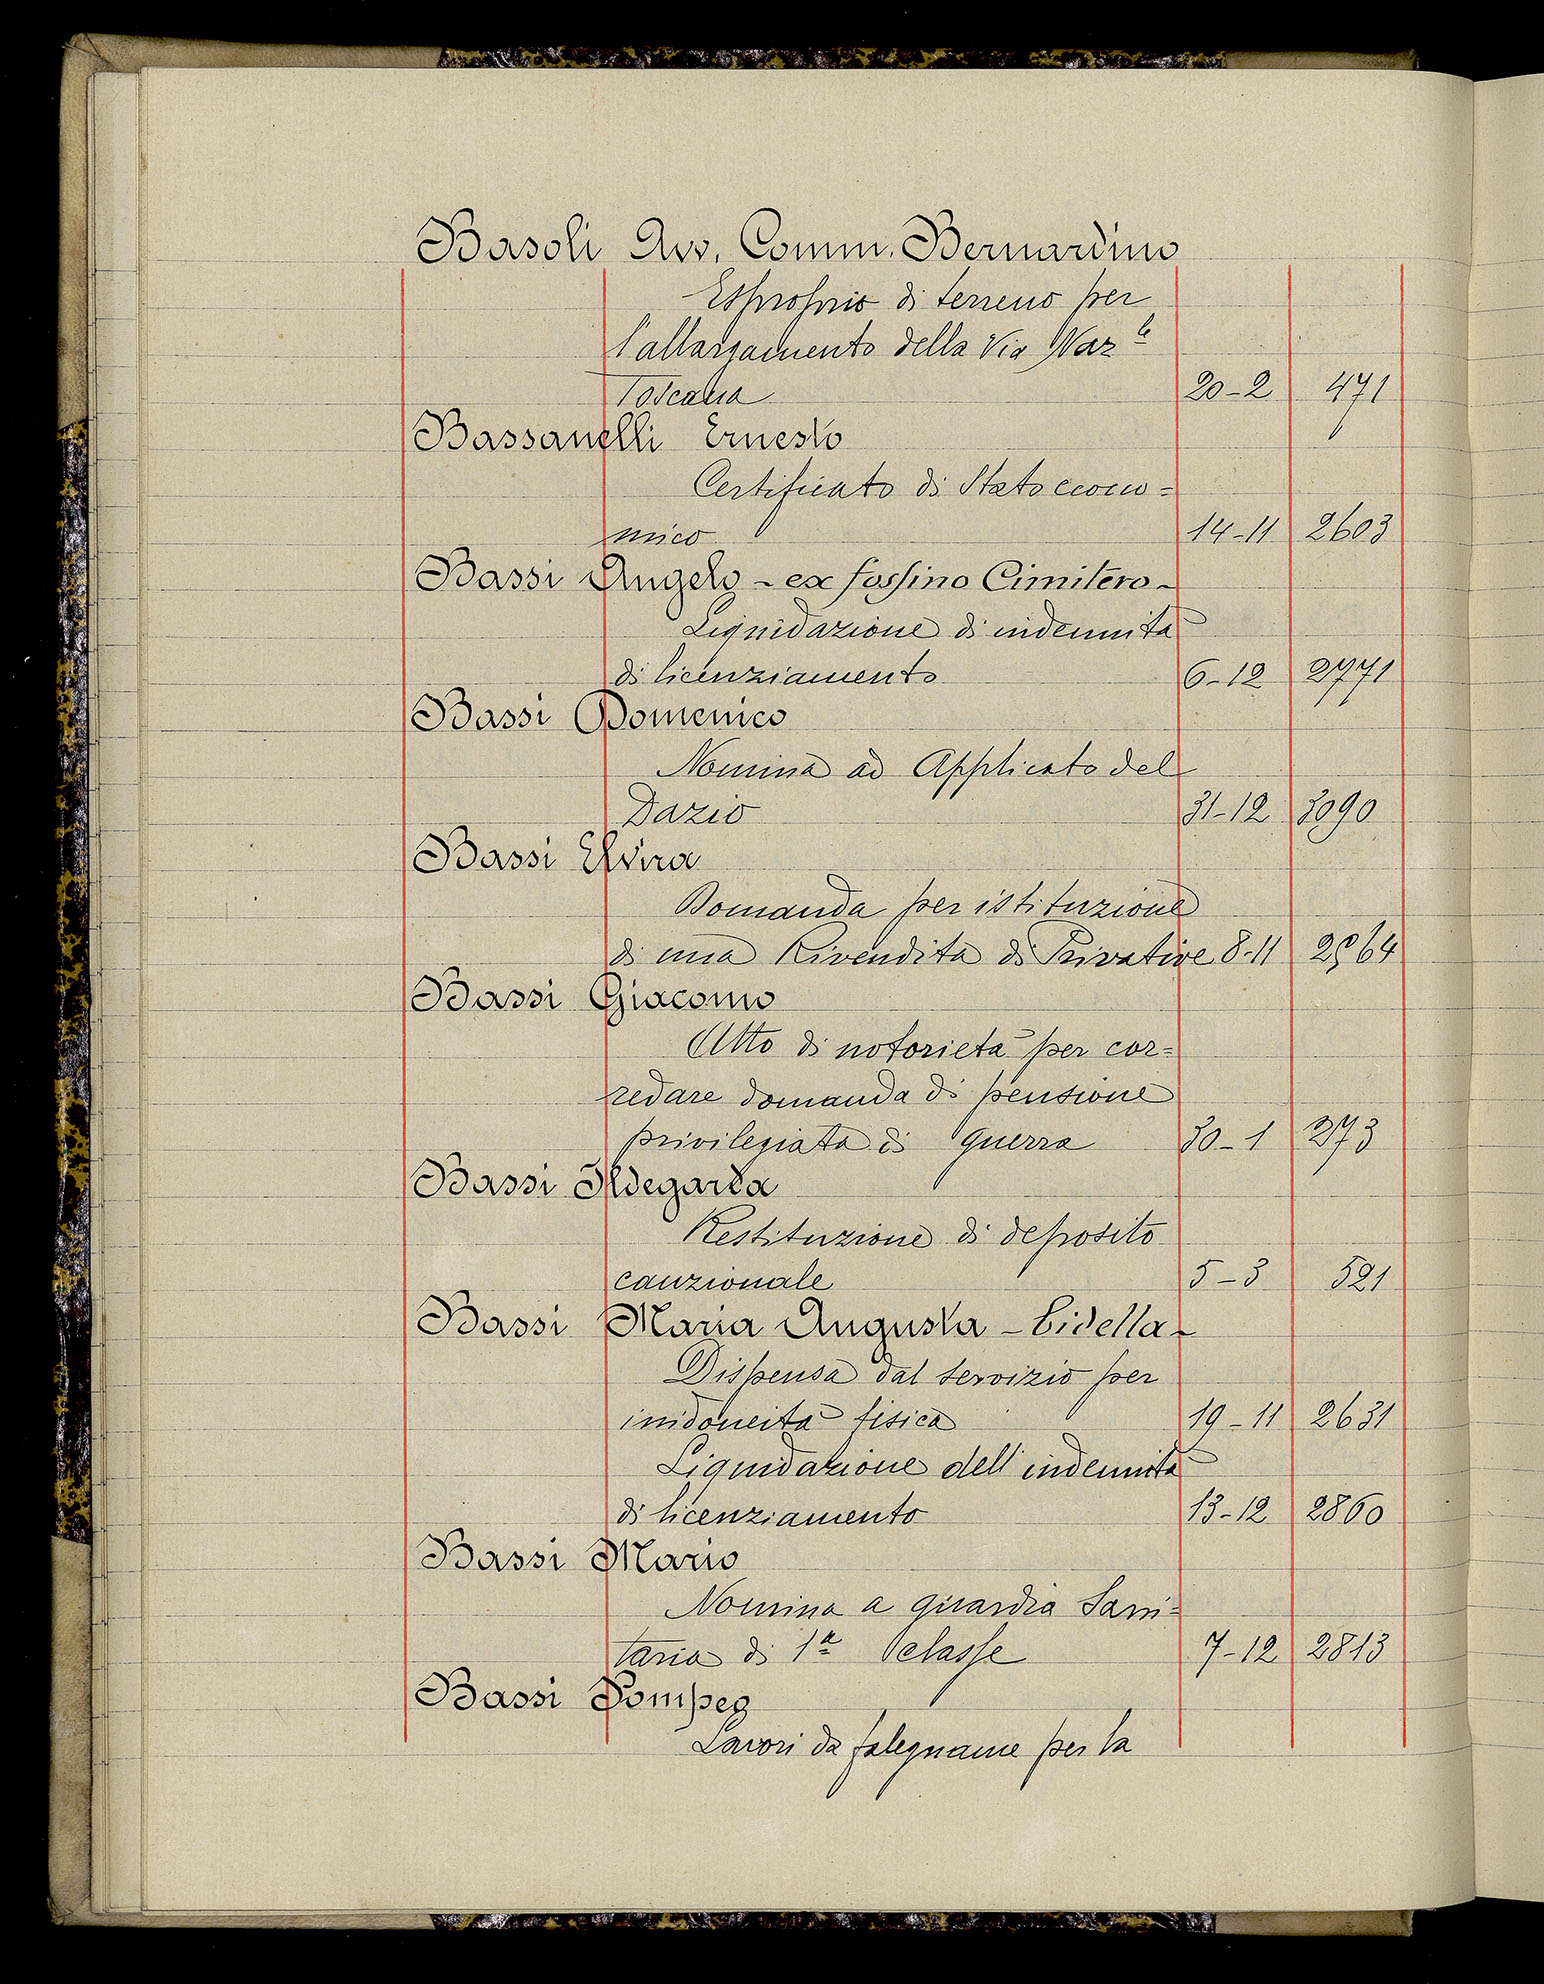 Basoli Avv. Comm. Bernardino
Esproprio di terreno per
l'allargamento della Via Naz.le
Toscana 20-2 471
Bassanelli Ernesto
Certificato di Stato econo=
mico 14-11 2603
Bassi Angelo - ex fossino Cimitero -
Liquidazione di indennità
di licenziamento 6-12 2771
Bassi Domenico
Nomina ad Applicato del
Dazio 31-12 3090
Bassi Elvira
Domanda per istituzione
di una Rivendita di Privative 8-11 2564
Bassi Giacomo
Atto di notorietà per cor=
redare domanda di pensione
privilegiata di guerra 30-1 273
Bassi Ildegarda
Restituzione di deposito
cauzionale 5-3 521
Bassi Maria Augusta - bidella -
Dispensa dal servizio per
inidoneità fisica 19-11 2631
Liquidazione dell'indennità
di licenziamento 13-12 2860
Bassi Mario
Nomina a guardia Sani=
taria di 1a classe 7-12 2813
Bassi Pompeo
Lavori da falegname per la